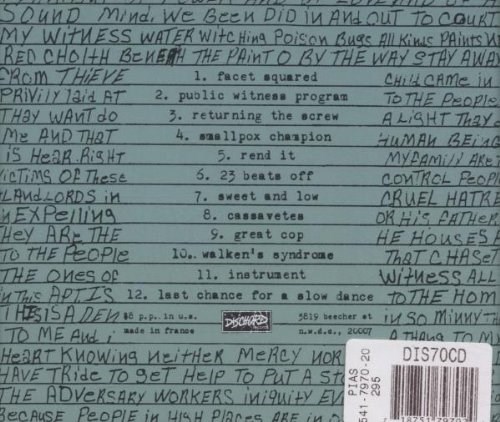 SOUND MiNd, We BeeN DiD iN ANd OUT To COURT
MY WiTNESS WATER WiTCHiNg PoiSoN Bugs All KiNds PAiNTs
RED THE PAiNT O BY THE WAY STAY AWAY
FROM THiEVE
1. facet squared
CHiLd CAMe iN
PRiVily laid AT
2. public witness program
To THE PeoPle
THAY WANT do
3. returning the screw
A LigHT THAY
Me ANd THAT
4. smallpox champion
HUMAN BEiNg
iS HeaR RigHT
5. rend it
MY FAMilY ARE
VicTiMS OF THese
6. 23 beats off
CONTROL PeoPl
LANdLORDS iN
7. sweet and low
CRUEL HATR
EXPelliNg
8. cassavetes
OR HiS FATHeR
THeY ARe THE
9. great cop
HE HOUSES
To THE PeoPle
10. walken's syndrome
THAT CHASeT
THE ONes OF
11. instrument
WiTNess ALL
iN THiS APT. iS
12. last chance for a slow dance
To THE HOM
THiS iS A DEN
$8 p.p. in u.s.
DISCHORD
3819 beecher st
iN SO MiNNY TH
To ME ANd,
made in france
n.w.d.c., 20007
A THANg To M
HeaRT KNOWiNg NeiTHeR MeRCY NOR
HAVE TRide To geT HelP To PuT A ST
THE ADVeRSARY WORKERS iNiquiTY EV
BeCAUSE PeoPle iN HigH PlACes ARE iN
DIS70CD
PIAS
295
541-7970-20